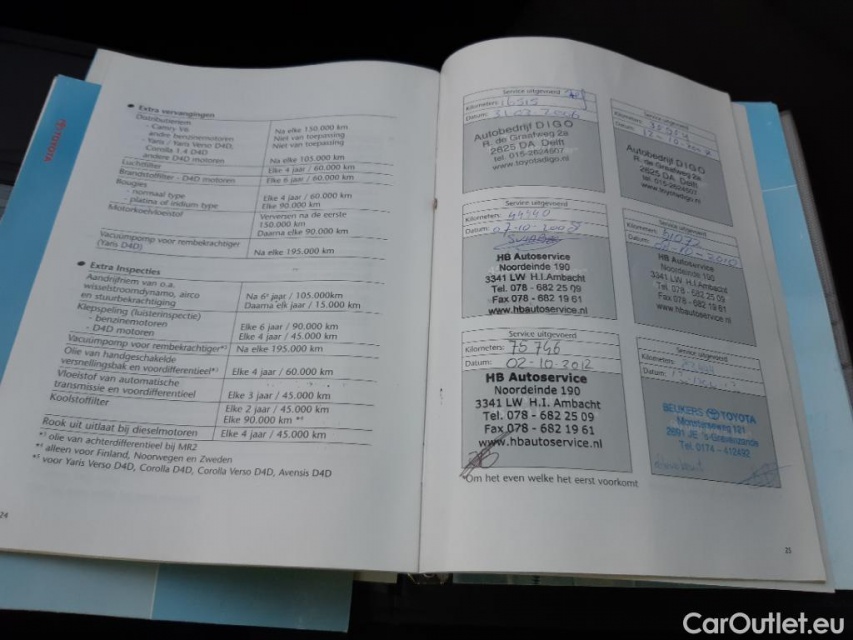 TOYOTA
• Extra vervangingen
Distributieriem
- Camry V6 Na elke 150.000 km
andere benzinemotoren Niet van toepassing
- Yaris / Yaris Verso D4D, Niet van toepassing
Corolla 1.4 D4D
andere D4D motoren Na elke 105.000 km
Luchtfilter Elke 4 jaar / 60.000 km
Brandstoffilter - D4D motoren Elke 6 jaar / 60.000 km
Bougies
- normaal type Elke 4 jaar / 60.000 km
- platina of iridium type Elke 90.000 km
Motorkoelvloeistof Verversen na de eerste
150.000 km
Daarna elke 90.000 km
Vacuümpomp voor rembekrachtiger
(Yaris D4D) Na elke 195.000 km
• Extra Inspecties
Aandrijfriem van o.a.
wisselstroomdynamo, airco Na 6e jaar / 105.000km
en stuurbekrachtiging Daarna elk jaar / 15.000 km
Klepspeling (luisterinspectie)
- benzinemotoren Elke 6 jaar / 90.000 km
- D4D motoren Elke 4 jaar / 45.000 km
Vacuümpomp voor rembekrachtiger Na elke 195.000 km
Olie van handgeschakelde
versnellingsbak en voordifferentieel Elke 4 jaar / 60.000 km
Vloeistof van automatische
transmissie en voordifferentieel Elke 3 jaar / 45.000 km
Koolstoffilter Elke 2 jaar / 45.000 km
Elke 90.000 km
Rook uit uitlaat bij dieselmotoren Elke 4 jaar / 45.000 km
olie van achterdifferentieel bij MR2
alleen voor Finland, Noorwegen en Zweden
voor Yaris Verso D4D, Corolla D4D, Corolla Verso D4D, Avensis D4D
24
Service uitgevoerd
Kilometers: 16515
Datum:
Autobedrijf DIGO
R. de Graafweg 2a
2625 DA Delft
tel. 015-2624907
www.toyotadigo.nl
Kilometers:
Datum:
Autobedrijf DIGO
R. de Graafweg 2a
2625 DA Delft
tel. 015-2624907
www.toyotadigo.nl
Service uitgevoerd
Kilometers: 44940
Datum: 07-10-2008
HB Autoservice
Noordeinde 190
3341 LW H.I.Ambacht
Tel. 078 - 682 25 09
Fax 078 - 682 19 61
www.hbautoservice.nl
Service uitgevoerd
Kilometers: 61072
Datum:
HB Autoservice
Noordeinde 190
3341 LW H.I. Ambacht
Tel. 078 - 682 25 09
Fax 078 - 682 19 61
www.hbautoservice.nl
Service uitgevoerd
Kilometers: 75746
Datum: 02-10-2012
HB Autoservice
Noordeinde 190
3341 LW H.I. Ambacht
Tel. 078 - 682 25 09
Fax 078 - 682 19 61
www.hbautoservice.nl
Service uitgevoerd
Kilometers:
Datum:
BEUKERS TOYOTA
Monsterseweg 121
2691 JE 's-Gravezande
Tel. 0174 - 412492
*Om het even welke het eerst voorkomt
25
CarOutlet.eu